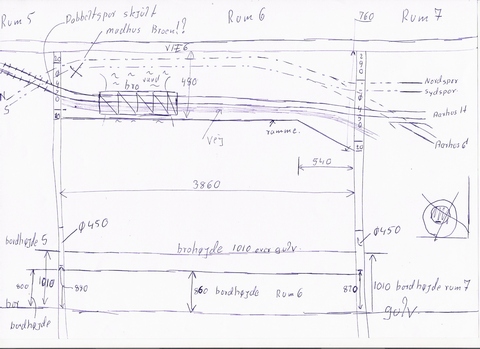 Rum 5
Dobbeltspor skjult
modhus Broen!!
Rum 6
760
Rum 7
VIZ6
bro
vand
480
N
S
Nordspor
sydspor
Aarhus H
Vej
ramme.
540
3860
Ø450
Ø450
bordhøjde 5
brohøjde 1010 over gulv.
800
1010
870
860
bordhøjde Rum 6
870
1010 bordhøjde rum 7
bordhøjde
gulv